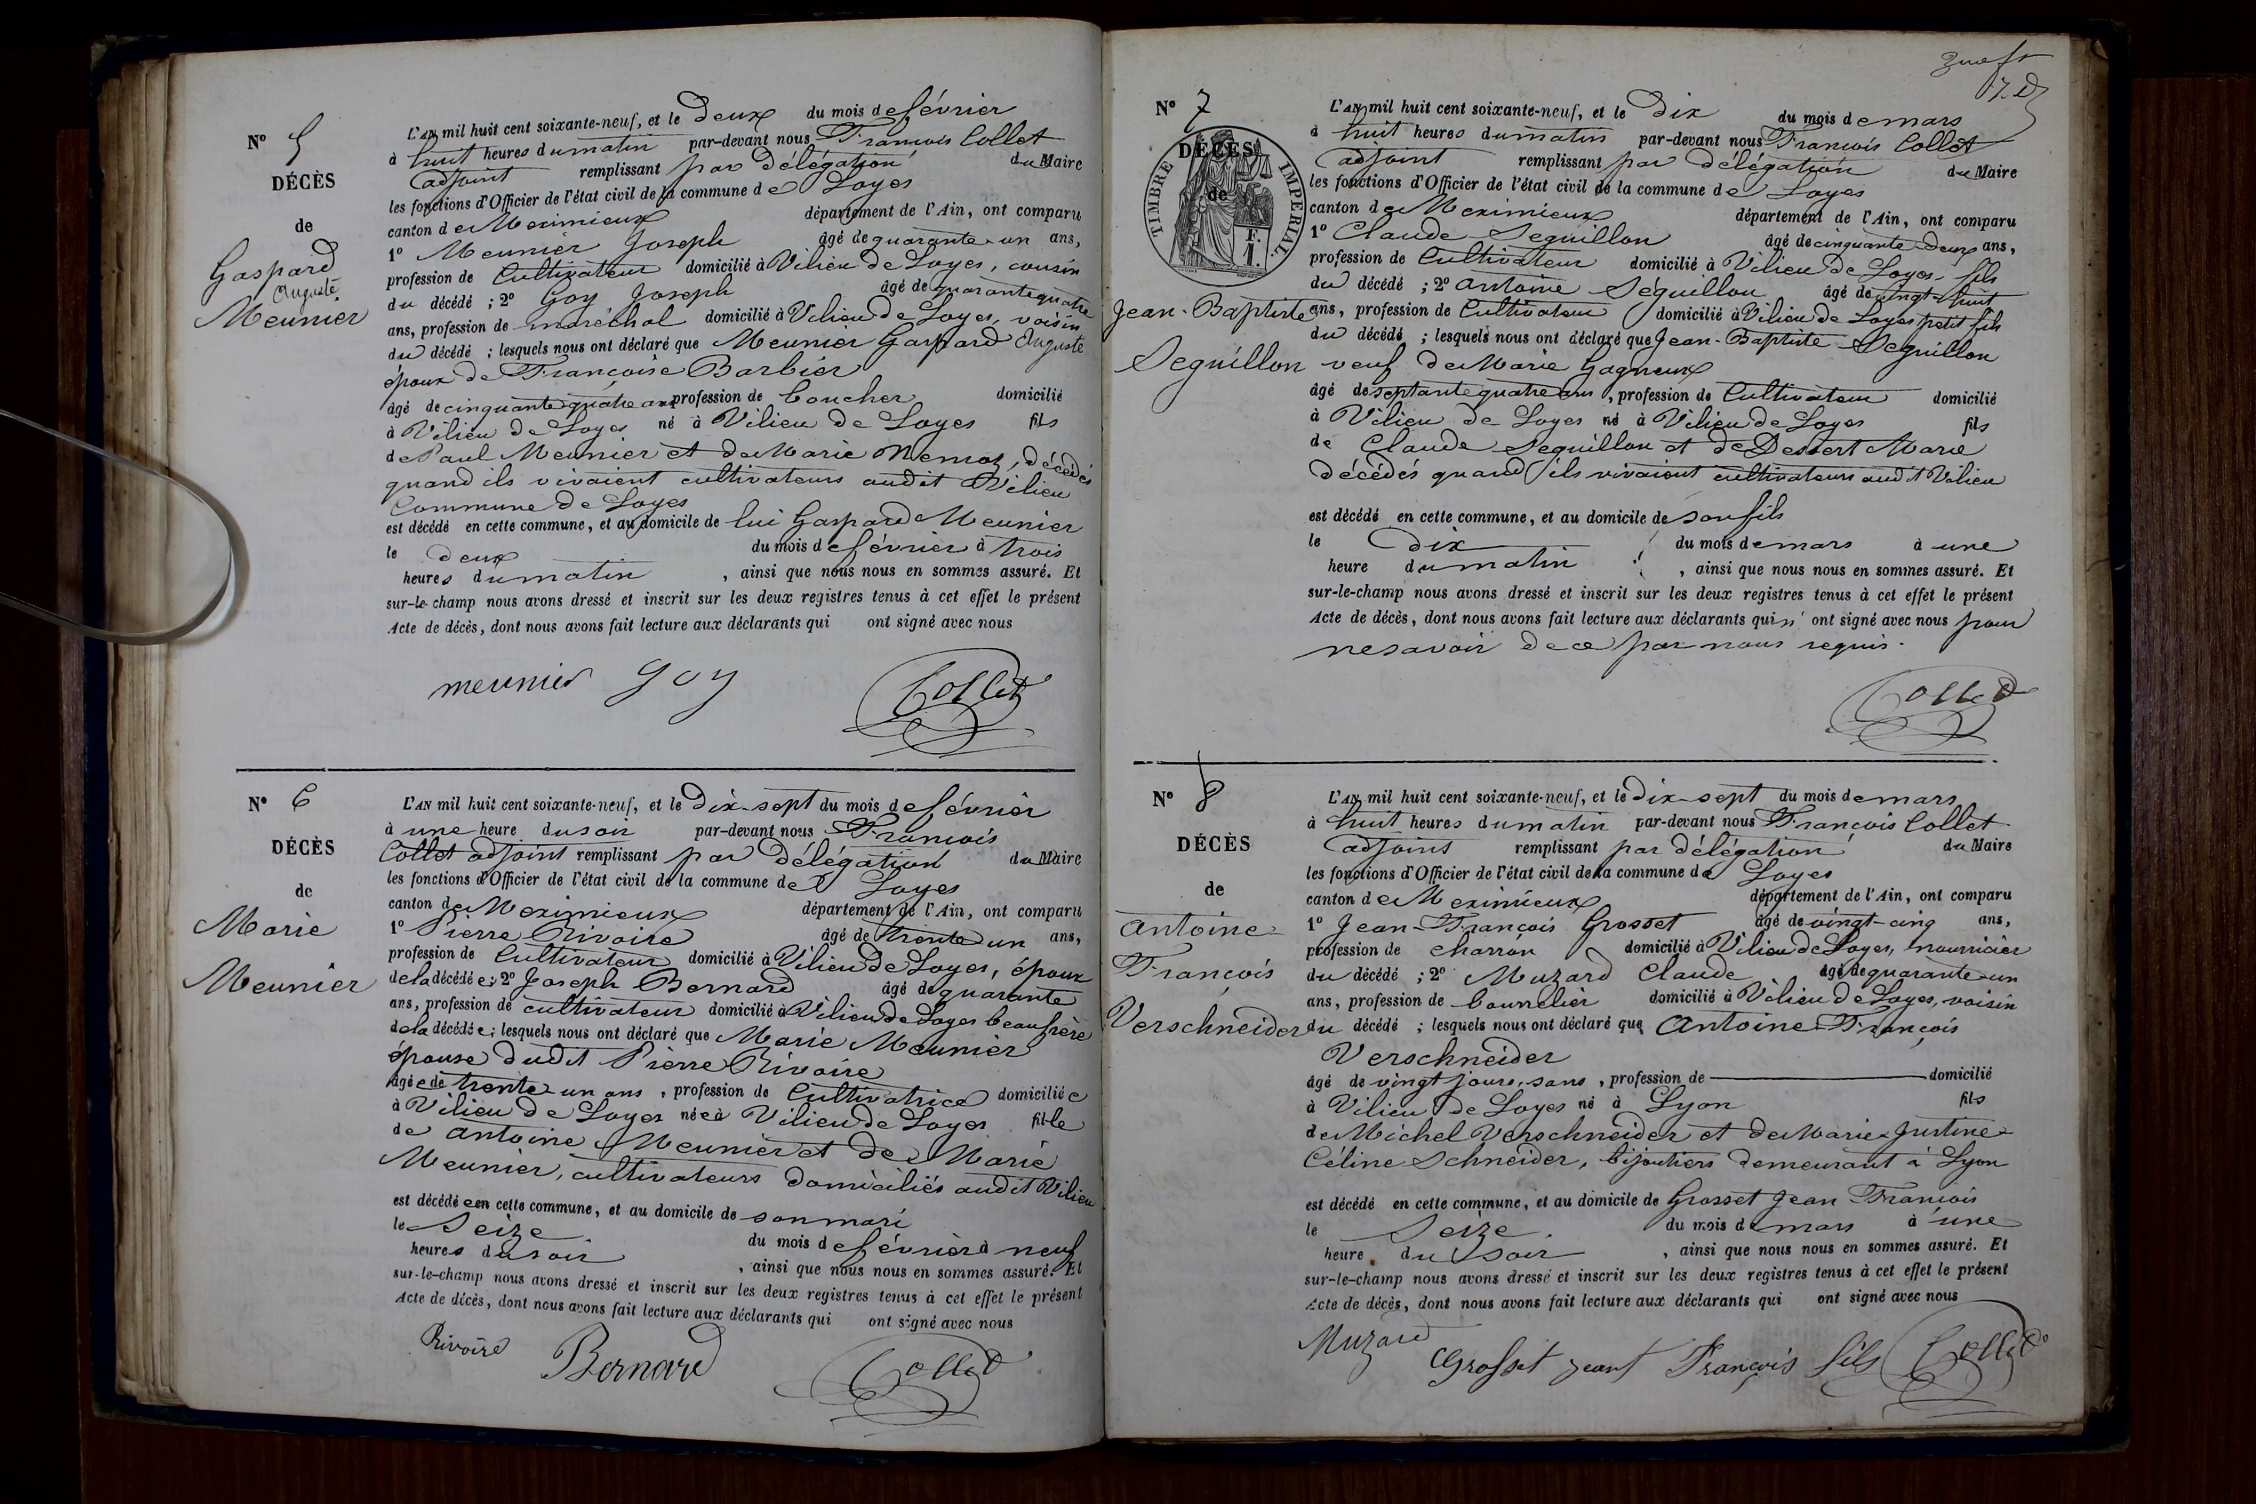 N° 5
DÉCÈS
de
Gaspard
Auguste
Meunier
L'AN mil huit cent soixante-neuf, et le deux du mois de février
à huit heures du matin par-devant nous François Collet
adjoint remplissant par délégation du Maire
les fonctions d'Officier de l'état civil de la commune de Loyes
canton de Meximieux département de l'Ain, ont comparu
1° Meunier Joseph âgé de quarante-un ans,
profession de Cultivateur domicilié à Vilieu de Loyes, cousin
du décédé ; 2° Goy Joseph âgé de quarante quatre
ans, profession de maréchal domicilié à Vilieu de Loyes, voisin
du décédé ; lesquels nous ont déclaré que Meunier Gaspard Auguste
époux de Françoise Barbier
âgé de cinquante quatre ans profession de boucher domicilié
à Vilieu de Loyes né à Vilieu de Loyes fils
de Paul Meunier et de Marie , décédés
quand ils vivaient cultivateurs audit Vilieu
Commune de Loyes
est décédé en cette commune, et au domicile de lui Gaspard Meunier
le deux du mois de février à trois
heures du matin , ainsi que nous nous en sommes assuré. Et
sur-le-champ nous avons dressé et inscrit sur les deux registres tenus à cet effet le présent
Acte de décès, dont nous avons fait lecture aux déclarants qui ont signé avec nous
meunier Goy Collet
N° 6
DÉCÈS
de
Marie
Meunier
L'AN mil huit cent soixante-neuf, et le dix-sept du mois de février
à une heure du soir par-devant nous François
Collet adjoint remplissant par délégation du Maire
les fonctions d'Officier de l'état civil de la commune de Loyes
canton de Meximieux département de l'Ain, ont comparu
1° Pierre Rivoire âgé de trente un ans,
profession de Cultivateur domicilié à Vilieu de Loyes, époux
de la décédée ; 2° Joseph Bernard âgé de quarante
ans, profession de cultivateur domicilié à Vilieu de Loyes beau frère
de la décédée ; lesquels nous ont déclaré que Marie Meunier
épouse dudit Pierre Rivoire
âgée de trente un ans, profession de Cultivatrice domiciliée
à Vilieu de Loyes née à Vilieu de Loyes fille
de Antoine Meunier et de Marie
Meunier, cultivateurs domiciliés audit Vilieu
est décédée en cette commune, et au domicile de son mari
le Seize du mois de février à neuf
heures du soir , ainsi que nous nous en sommes assuré. Et
sur-le-champ nous avons dressé et inscrit sur les deux registres tenus à cet effet le présent
Acte de décès, dont nous avons fait lecture aux déclarants qui ont signé avec nous
Rivoire Bernard Collet
N° 7
DÉCÈS
de
TIMBRE IMPERIAL
F.
1.
Jean-Baptiste
Seguillon
L'AN mil huit cent soixante-neuf, et le Dix du mois de mars
à huit heures du matin par-devant nous François Collet
adjoint remplissant par délégation du Maire
les fonctions d'Officier de l'état civil de la commune de Loyes
canton de Meximieux département de l'Ain, ont comparu
1° Claude Seguillon âgé de cinquante Deux ans,
profession de Cultivateur domicilié à Vilieu de Loyes, fils
du décédé ; 2° Antoine Séguillon âgé de vingt-huit
ans, profession de Cultivateur domicilié à Vilieu de Loyes petit fils
du décédé ; lesquels nous ont déclaré que Jean-Baptiste Seguillon
veuf de Marie Gagneux
âgé de septante quatre ans, profession de Cultivateur domicilié
à Vilieu de Loyes né à Vilieu de Loyes fils
de Claude Seguillon et de Dessert Marie
décédés quand ils vivaient cultivateurs audit Vilieu
est décédé en cette commune, et au domicile de son fils
le dix du mois de mars à une
heure du matin , ainsi que nous nous en sommes assuré. Et
sur-le-champ nous avons dressé et inscrit sur les deux registres tenus à cet effet le présent
Acte de décès, dont nous avons fait lecture aux déclarants qui n' ont signé avec nous pour
ne savoir de ce par nous requis.
Collet
N° 8
DÉCÈS
de
Antoine
François
Verschneider
L'AN mil huit cent soixante-neuf, et le dix-sept du mois de mars
à huit heures du matin par-devant nous François Collet
adjoint remplissant par délégation du Maire
les fonctions d'Officier de l'état civil de la commune de Loyes
canton de Meximieux département de l'Ain, ont comparu
1° Jean-François Grosset âgé de vingt-cinq ans,
profession de charron domicilié à Vilieu de Loyes, nourricier
du décédé ; 2° Muzard Claude âgé de quarante un
ans, profession de bourrelier domicilié à Vilieu de Loyes, voisin
du décédé ; lesquels nous ont déclaré que Antoine-François
Verschneider
âgé de vingt jours, sans , profession de domicilié
à Vilieu de Loyes né à Lyon fils
de Michel Verschneider et de Marie Justine
Céline Schneider, bijoutiers demeurant à Lyon
est décédé en cette commune, et au domicile de Grosset Jean François
le Seize du mois de mars à une
heure du soir , ainsi que nous nous en sommes assuré. Et
sur-le-champ nous avons dressé et inscrit sur les deux registres tenus à cet effet le présent
Acte de décès, dont nous avons fait lecture aux déclarants qui ont signé avec nous
Muzard
Grosset jean François fils Collet